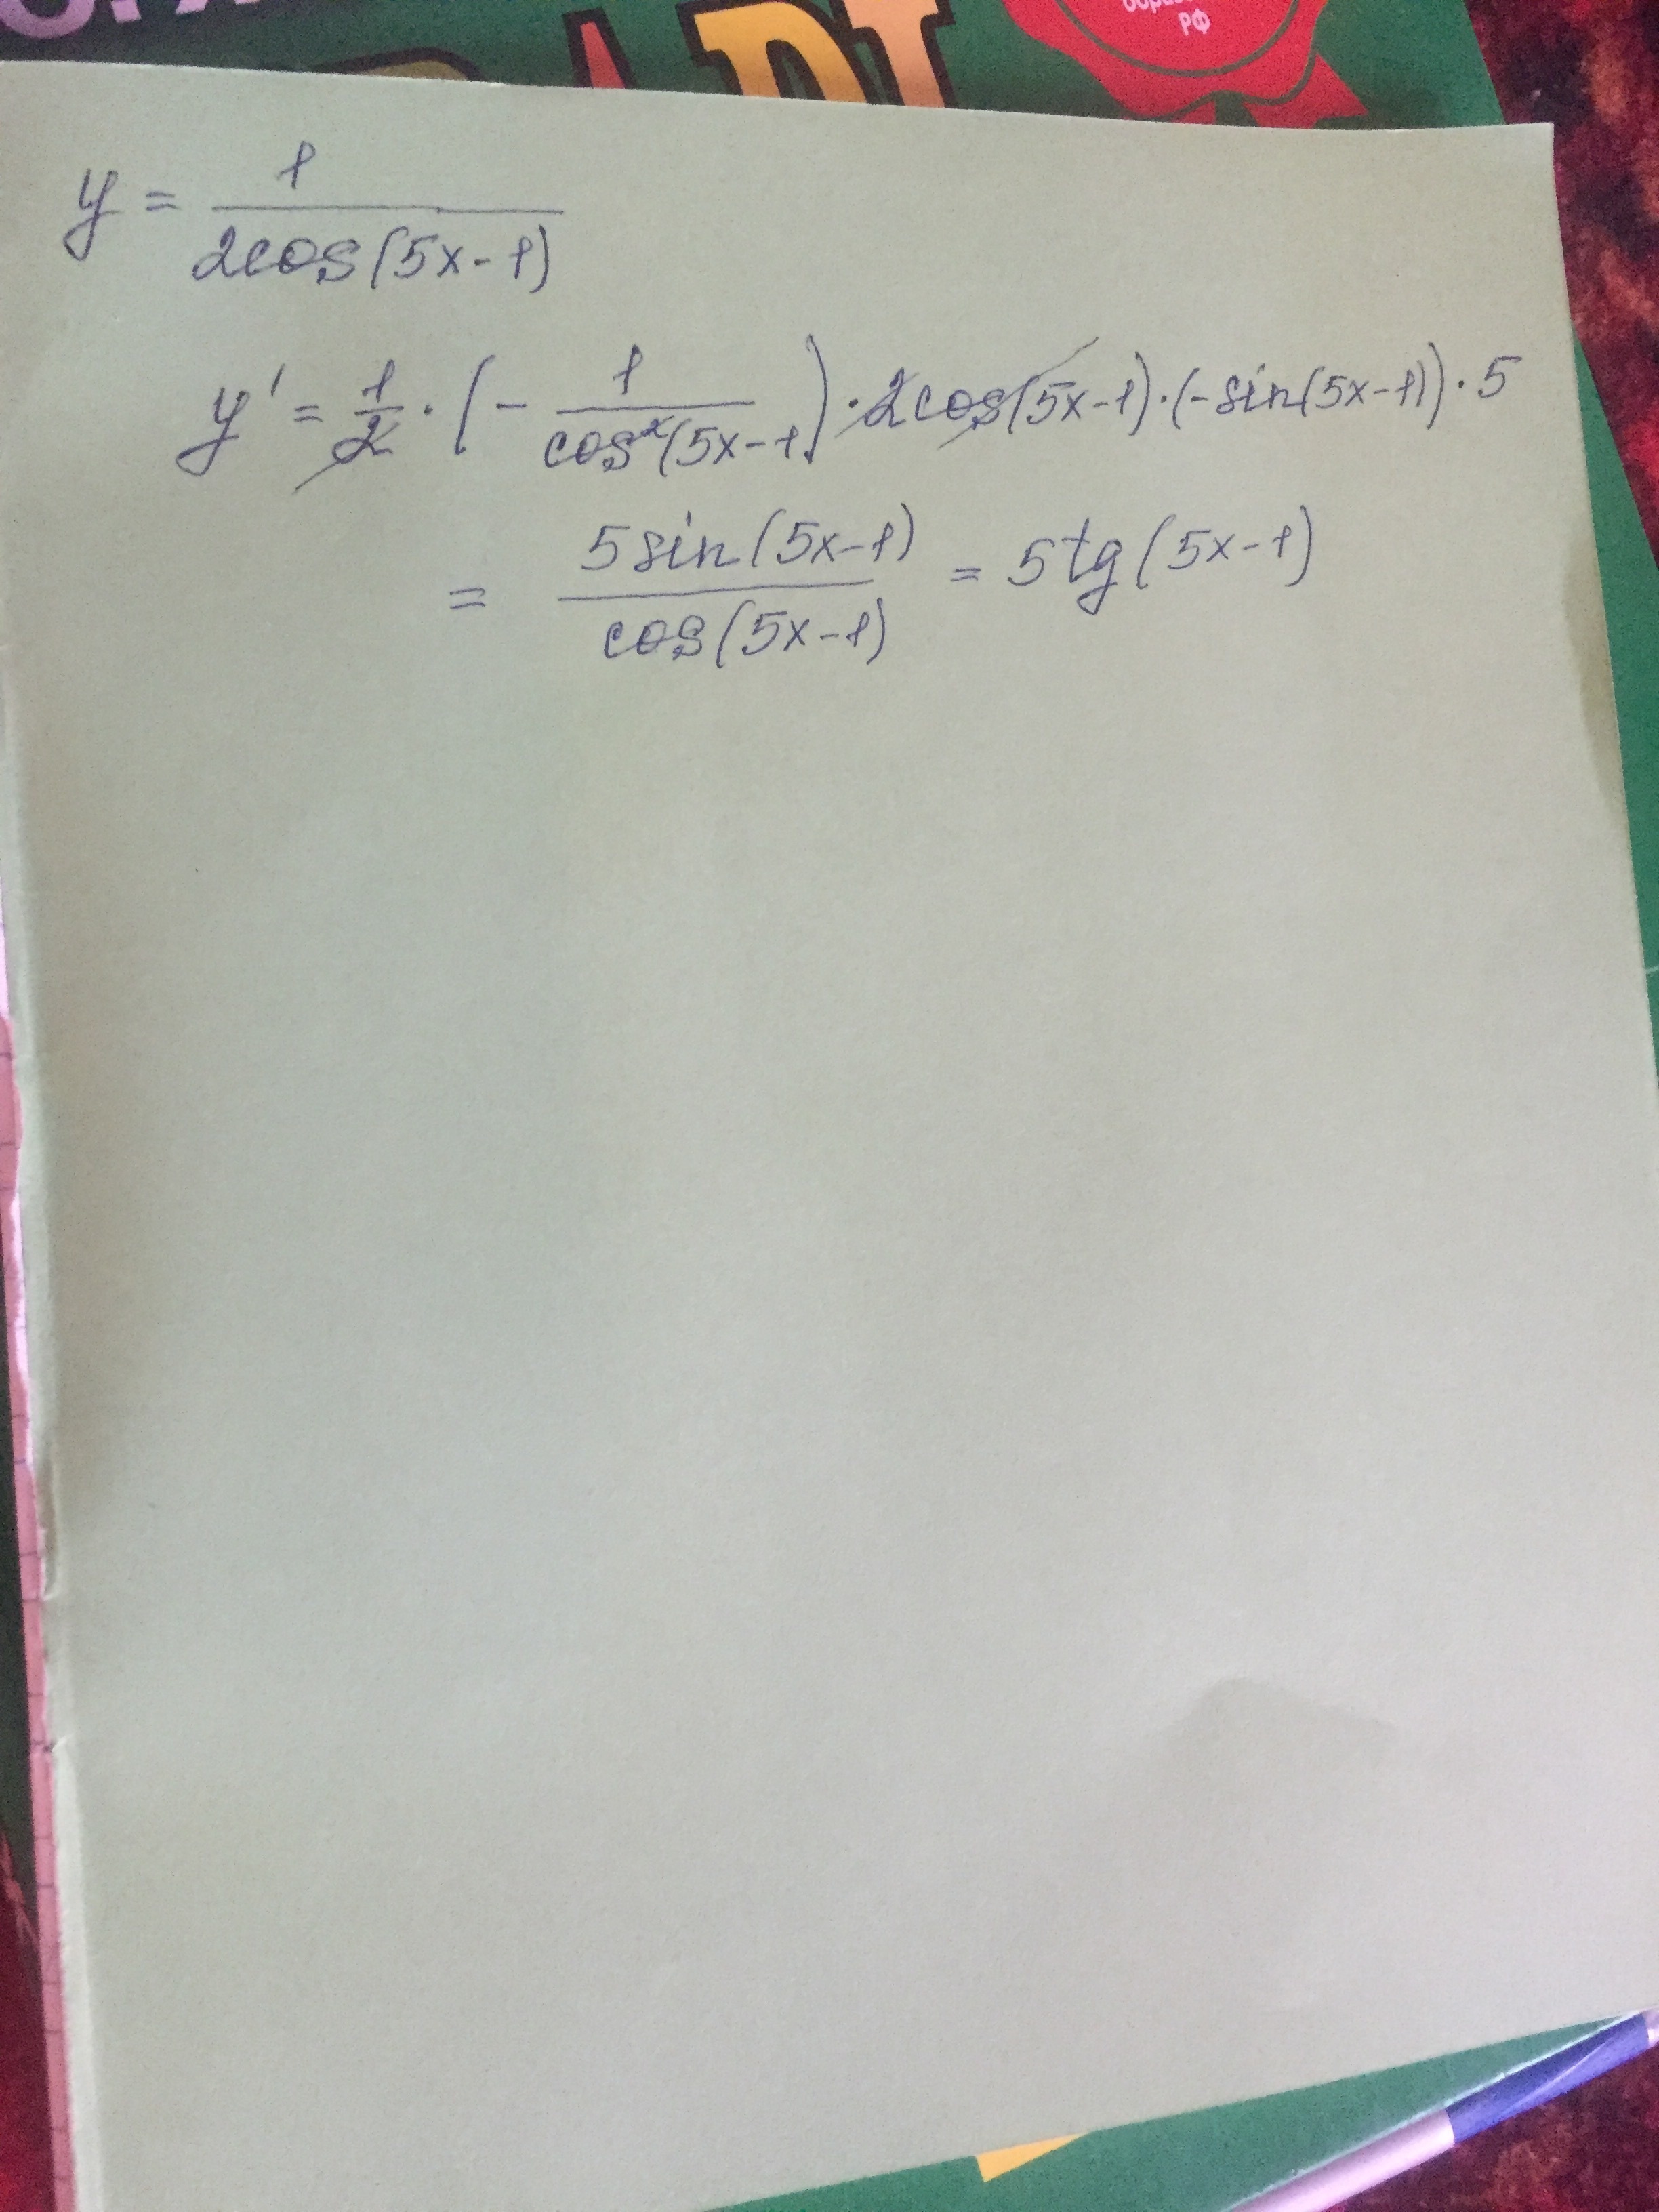 РФ
y = 1 / 2cos(5x-1)
y' = 1/2 · (- 1 / cos²(5x-1)) · 2cos(5x-1) · (-sin(5x-1)) · 5
= 5sin(5x-1) / cos(5x-1) = 5tg(5x-1)